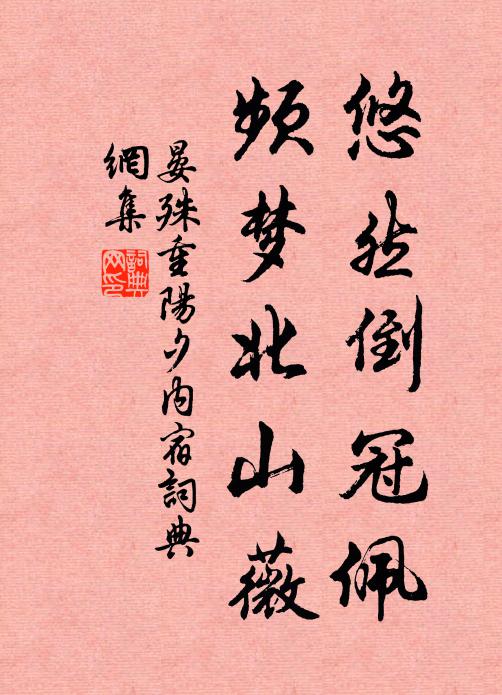 悠然倒冠佩
频梦北山薇
晏殊重陽夕内宿詞典
網集
詞典
网印